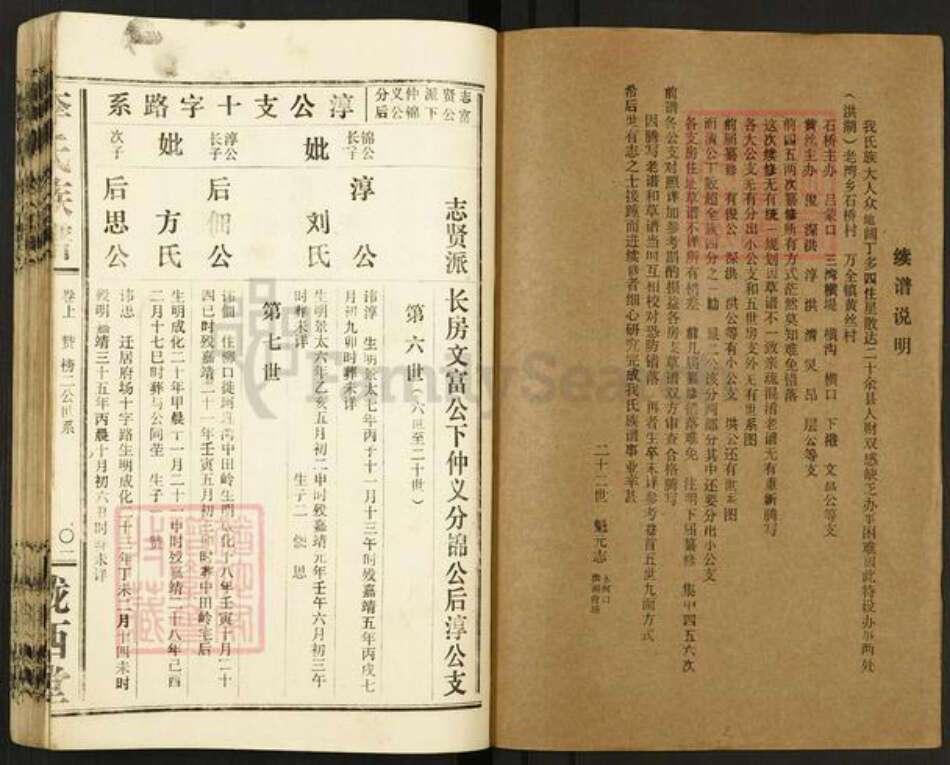 续谱说明
我氏族大人众地阔丁多四住星散达二十余县人财双感缺乏办事困难因此特设办事两处
(洪湖)老湾乡石桥村 万全镇黄丝村
石桥主办 吕蒙口 三湾横堤 横沟 横口 下橃 文 公等支
黄丝主办 俊 深洪 淳 洪 清 炅 昂 层公等支
前四五两次纂修所有方式茫然莫知难免错落
这次续修无有统一规划因草谱不一致亲疏混淆老谱无有重新腾写
各大公支无有分出小公支和五世房支外无有世系图
前届纂修 有俊公 深洪 洪公等有小公支 洪公还有世系图
而演公丁数超全族四分之一 公该分两部分其中还要分出小公支
各支房住址草谱不详所有错差 前几届纂修错落难免 注明下届纂修 集中四五六次
前谱各公支对照详加参考斟酌损益各房支草谱双方审查合格腾写
因腾写老谱和草谱当时互相校对恐防错落 再者生卒未详参考卷首五世九南方式
希后世有志之士接踵而进续修者细心研究完成我氏族谱事业幸甚
二十二世 魁元志
志贤派仲义分
富公下锦公后
淳公支十字路系
志贤派 长房文富公下仲义分锦公后淳公支
第六世(六世至二十世)
锦公长子 淳公 讳淳 生明景太七年丙子十一月十三午时殁嘉靖五年丙戌七
月初九卯时葬未详
妣 刘氏 生明景太六年乙亥五月初二申时殁嘉靖元年壬午六月初三午
时葬未详 生子二 佃 思
第七世
淳公长子 后佃公 讳佃 住柳口徙 湾中田岭生明成化十八年壬寅十月二十
四巳时殁嘉靖二十一年壬寅五月初 卯时葬中田岭宅后
妣 方氏 生明成化二十年甲晨十一月二十一申时殁嘉靖二十八年己酉
二月十七巳时葬与公同茔 生子一 赞
次子 后思公 讳思 迁居府场十字路生明成化二十三年丁未二月十四未时
殁明嘉靖三十五年丙晨十月初六 时葬未详
李氏族谱
卷上 赞榜二公世系
〇二
陇西堂